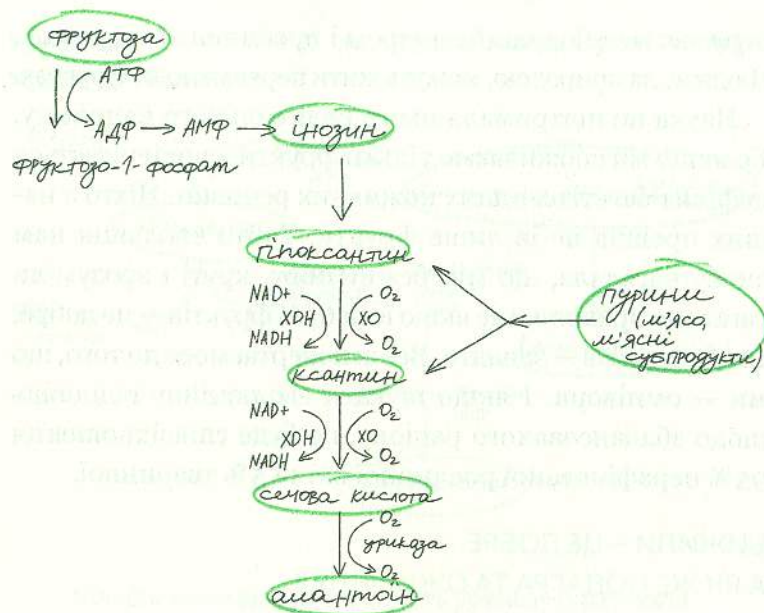 фруктоза
АТФ
АДФ → АМФ → інозин
фруктозо-1-фосфат
гіпоксантин
NAD+ O₂
XDH XO
NADH O₂
пурини
(м'ясо,
м'ясні
субпродукти)
ксантин
NAD+ O₂
XDH XO
NADH O₂
сечова кислота
O₂
уриказа
O₂
алантоїн